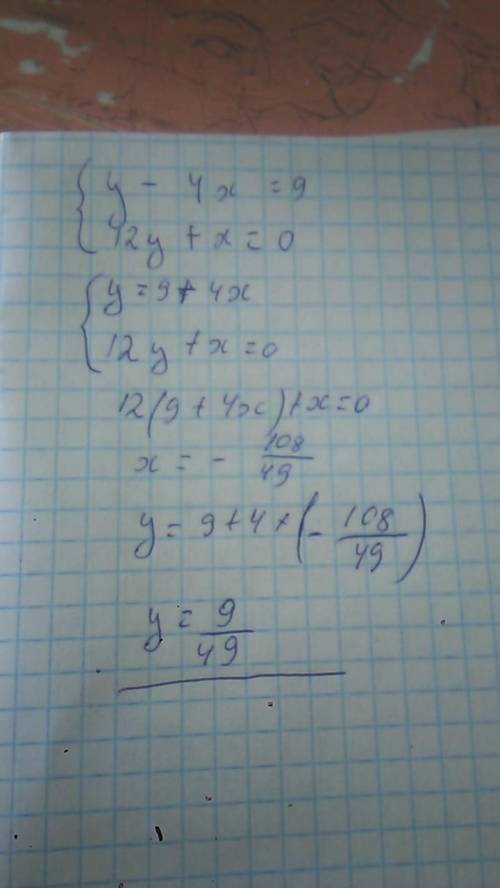 { y - 4x = 9
12y + x = 0
{ y = 9 + 4x
12y + x = 0
12(9 + 4x) + x = 0
x = - 108/49
y = 9 + 4 + (- 108/49)
y = 9/49